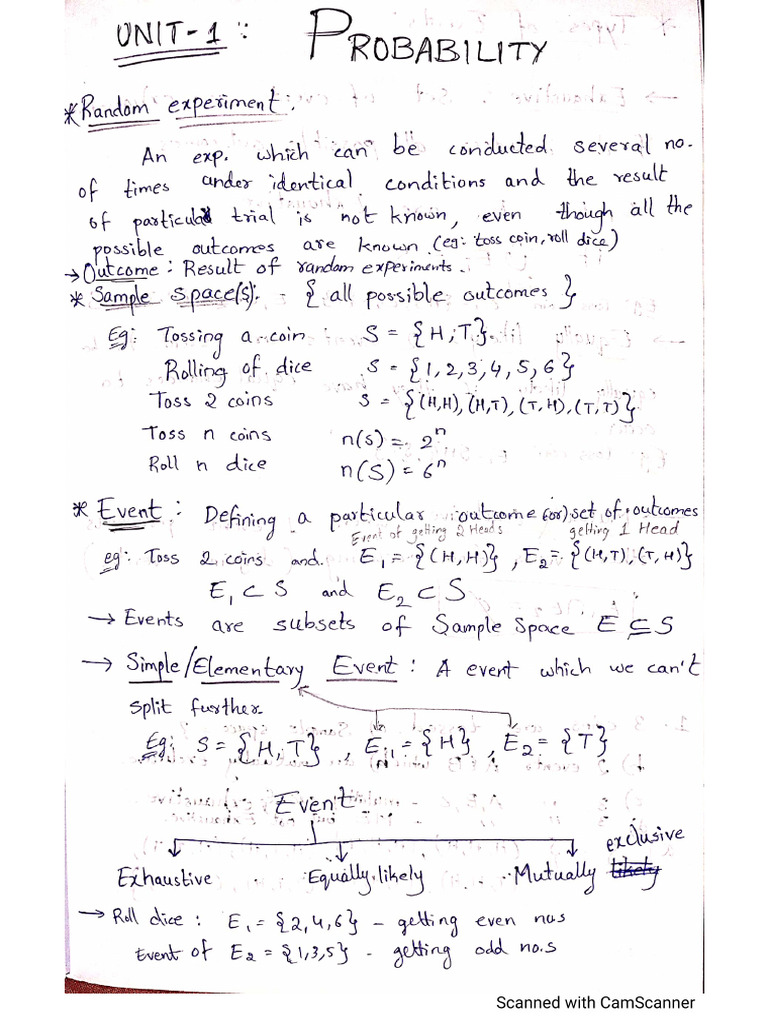 UNIT-1: PROBABILITY
* Random experiment:
An exp. which can be conducted several no.
of times under identical conditions and the result
of particular trial is not known, even though all the
possible outcomes are known (eg: toss coin, roll dice)
→ Outcome: Result of random experiments.
* Sample space(s): - { all possible outcomes }
Eg: Tossing a coin : S = {H, T}.
Rolling of dice S = {1, 2, 3, 4, 5, 6}
Toss 2 coins S = {(H,H), (H,T), (T,H), (T,T)}
Toss n coins n(s) = 2ⁿ
Roll n dice n(S) = 6ⁿ
* Event: Defining a particular outcome (or) set of outcomes
Event of getting 2 Heads getting 1 Head
eg: Toss 2 coins and E₁ = {(H,H)}, E₂ = {(H,T), (T,H)}
E₁ ⊂ S and E₂ ⊂ S
→ Events are subsets of Sample Space E ⊆ S
→ Simple/Elementary Event: A event which we can't
split further
Eg: S = {H, T}, E₁ = {H}, E₂ = {T}
Event
Exhaustive Equally likely Mutually likely exclusive
→ Roll dice: E₁ = {2,4,6} - getting even nos
Event of E₂ = {1,3,5} - getting odd no.s
Scanned with CamScanner